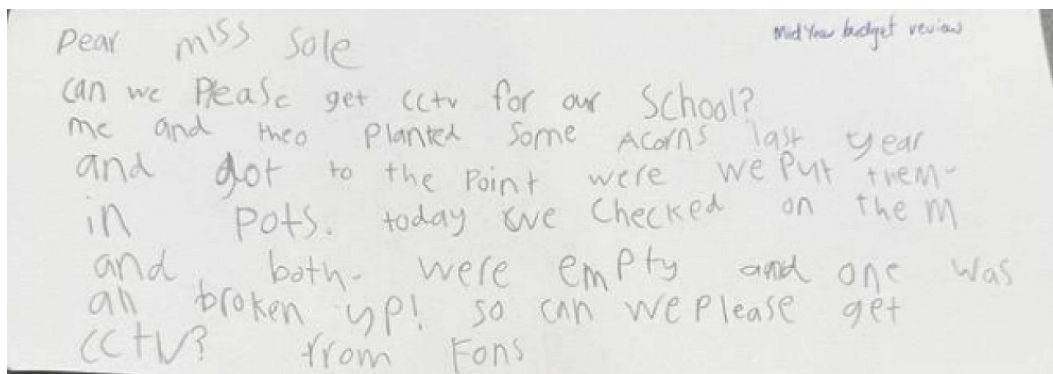 Dear miss Sole
Mid Year budget review
can we Please get cctv for our School?
me and theo Planted some Acorns last year
and got to the Point were we Put them-
in pots. today we Checked on them
and both- were empty and one was
all broken up! so can we Please get
CCTV? from Fons